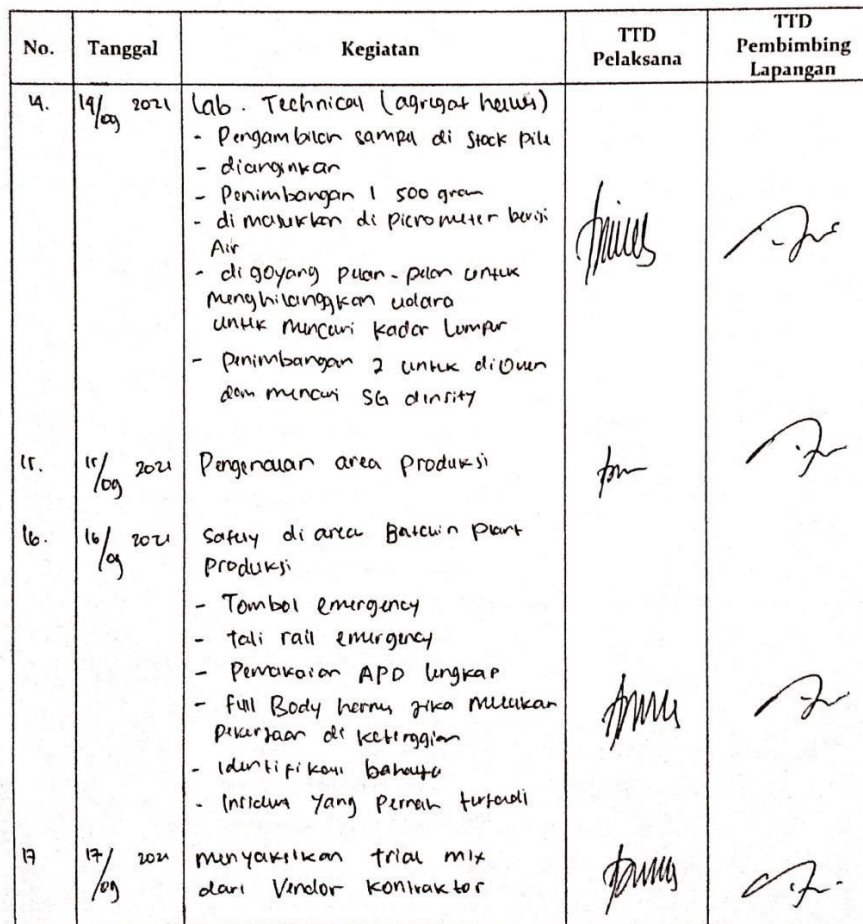 No. Tanggal Kegiatan TTD Pelaksana TTD Pembimbing Lapangan
14. 14/09 2021 Lab. Technical (agregat halus)
- Pengambilan sampel di Stock pile
- dianginkan
- Penimbangan 1 500 gram
- di masukkan di picnometer berisi
Air
- di goyang pelan-pelan untuk
menghilanggkan udara
untuk mencari kadar Lumpur
- penimbangan 2 untuk diOven
dan mencari SG density
15. 15/09 2021 Pengenalan area produksi
16. 16/09 2021 Safety di area Plant
produksi
- Tombol emergency
- tali rail emergency
- Pemakaian APD lengkap
- Full Body jika
pekerjaan di ketinggian
- identifikasi bahaya
- Yang Pernah terjadi
17 17/09 2021 menyaksikan trial mix
dari Vendor kontraktor